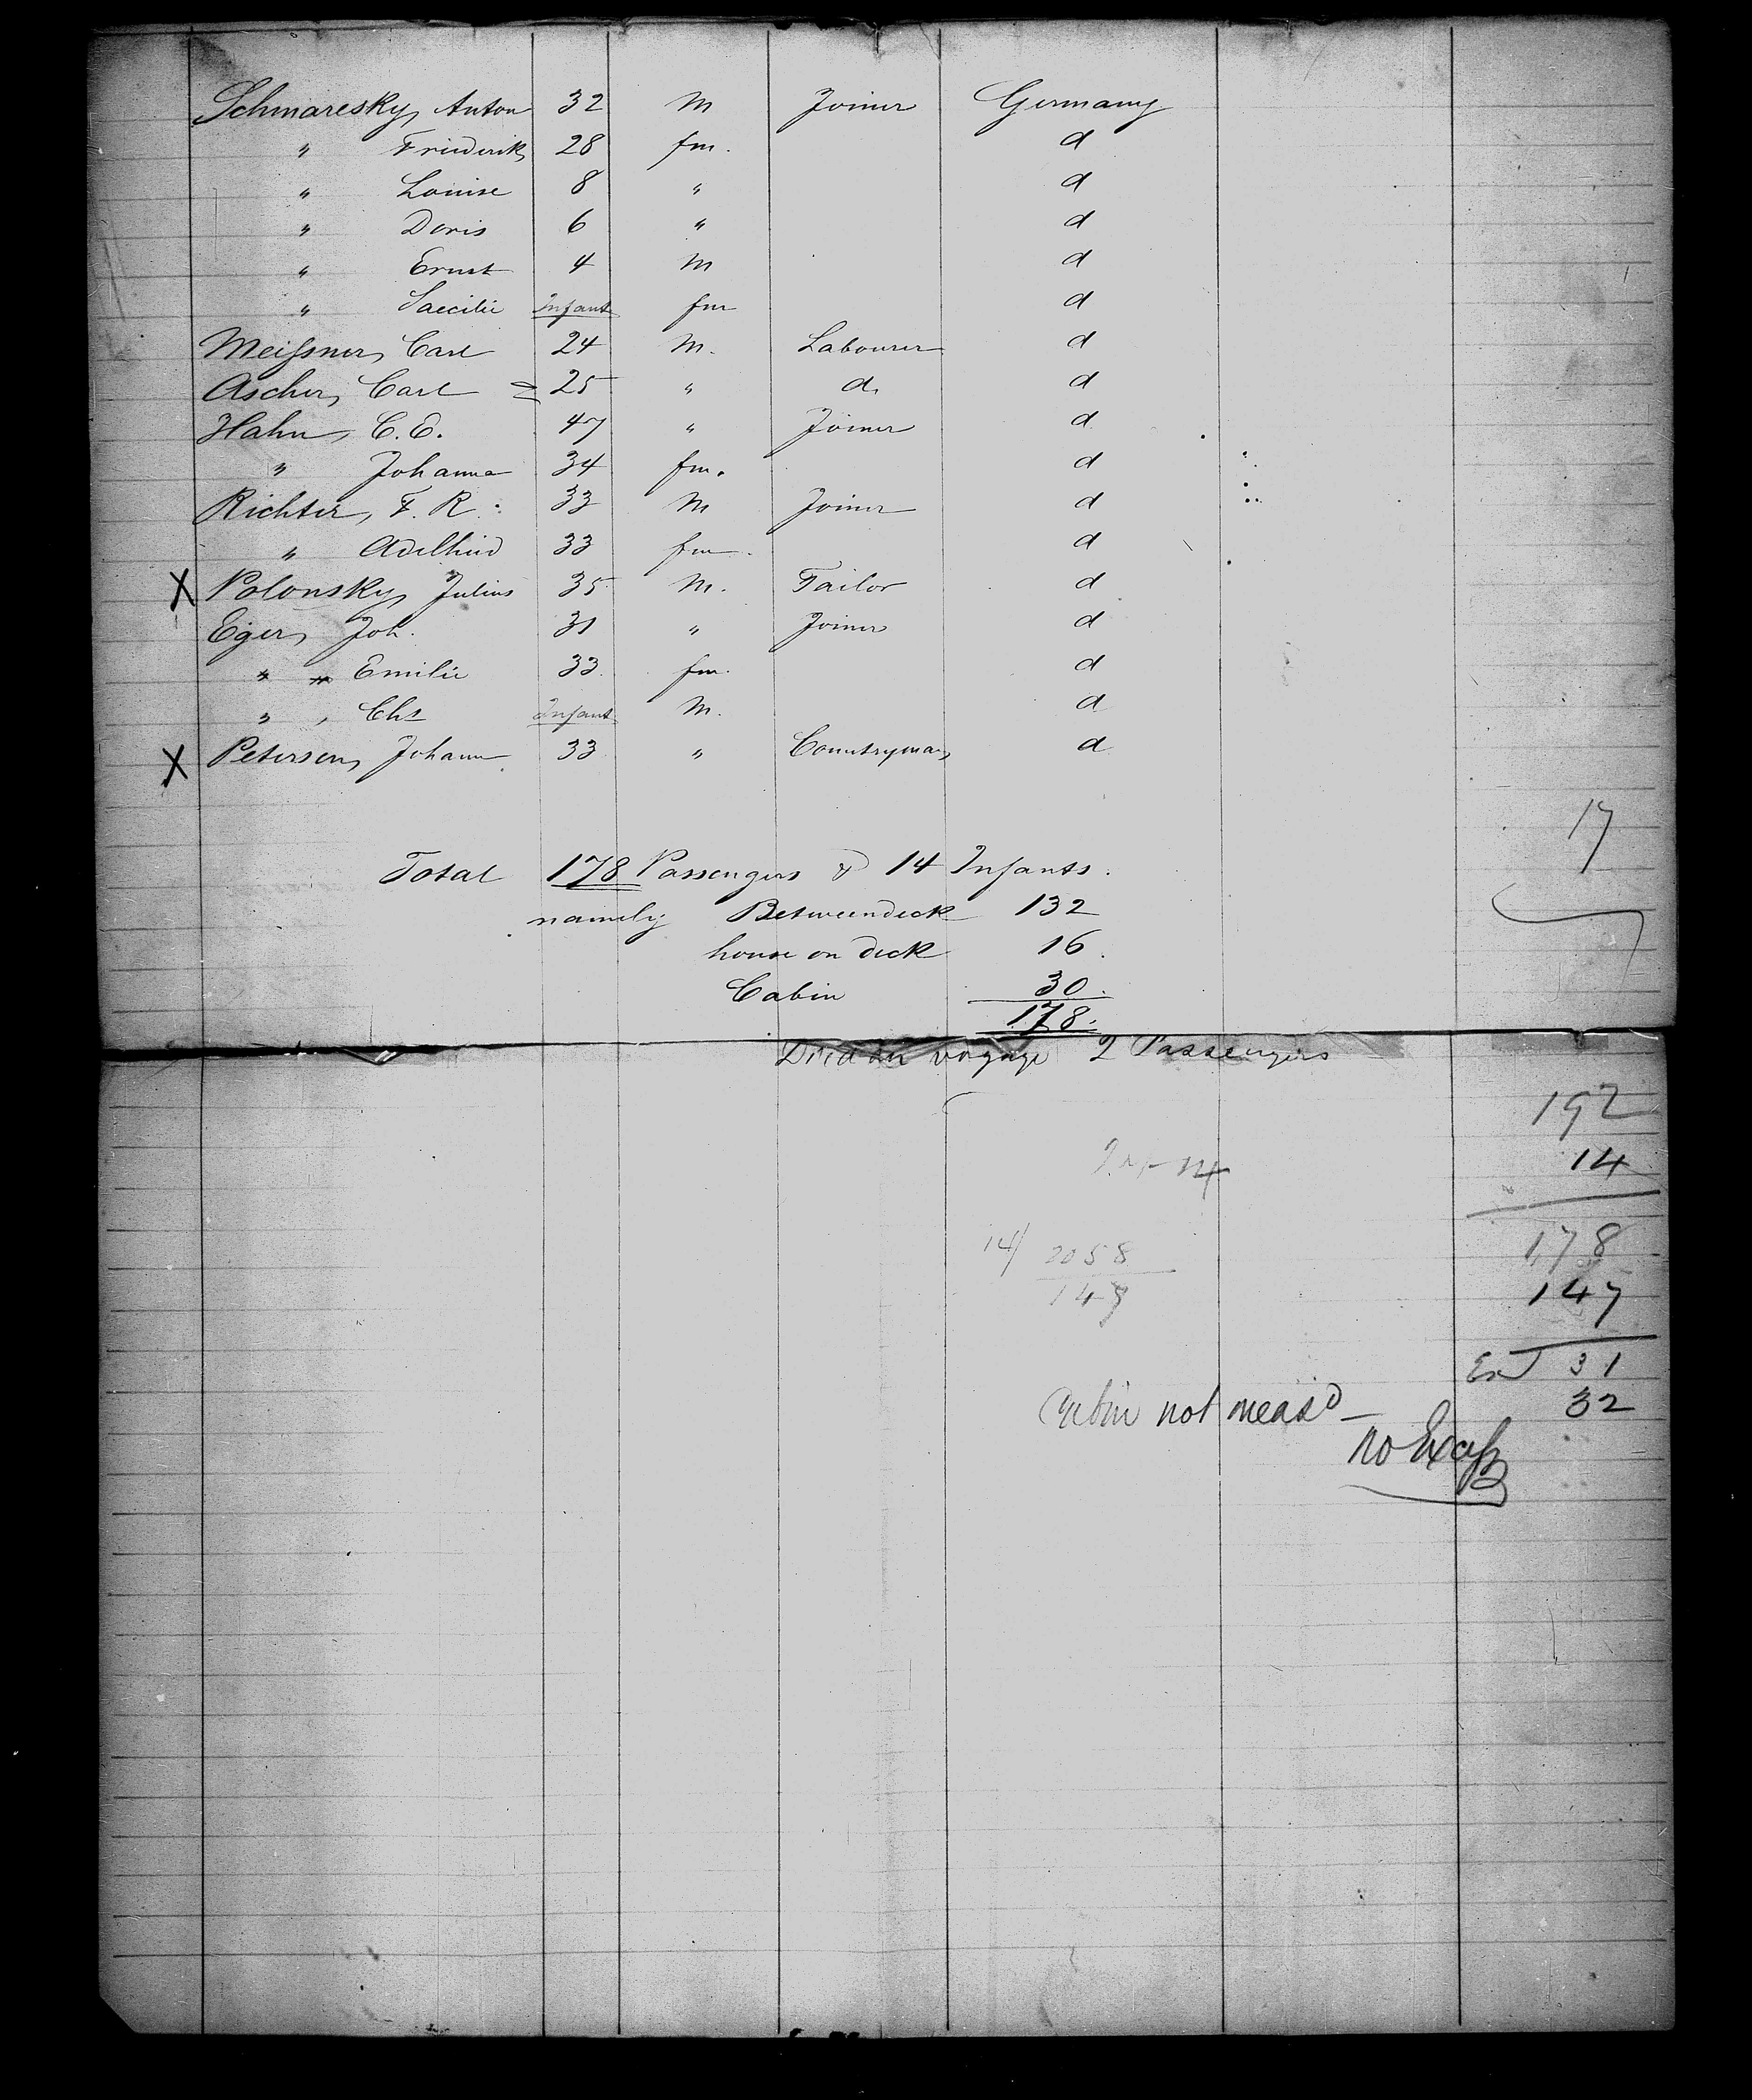 Schmaresky, Anton 32 M Joiner Germany
" Friederike 28 fm. d
" Louise 8 " d
" Doris 6 " d
" Ernst 4 M d
" Saecilie Infant fm d
Meiſsner, Carl 24 M. Labourer d
Ascher, Carl = 25 " d. d
Hahn, C. E. 47 " Joiner d
" Johanna 34 fm. d
Richter, F. R. 33 M Joiner d
" Adelheid 33 fm. d
X Polonsky, Julius 35 M. Tailor d
Eger, Joh. 31 " Joiner d
" " Emilie 33 fm. d
" , Chs Infant M. d
X Petersen, Johann 33 " Countryman d
17
Total 178 Passengers & 14 Infants.
namely Betweendeck 132
house on deck 16.
Cabin 30.
178.
Died on voyage 2 Passengers
192
14
14/ 2058
147
178
147
Ex 31
32
Cabin not measd —
no Exceſs